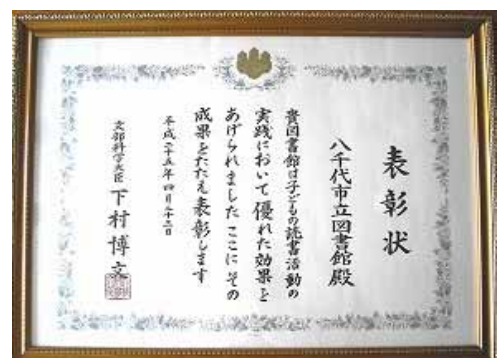 表彰状
八千代市立図書館殿
貴図書館は子どもの読書活動の
実践において優れた効果を
あげられました ここに その
成果をたたえ表彰します
平成二十五年四月二十三日
文部科学大臣 下村博文